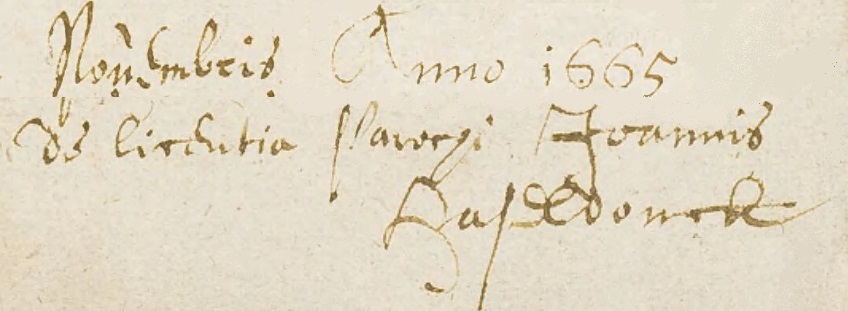 Novembris Anno 1665
de licentia Parochi Joannis
Haseldonck